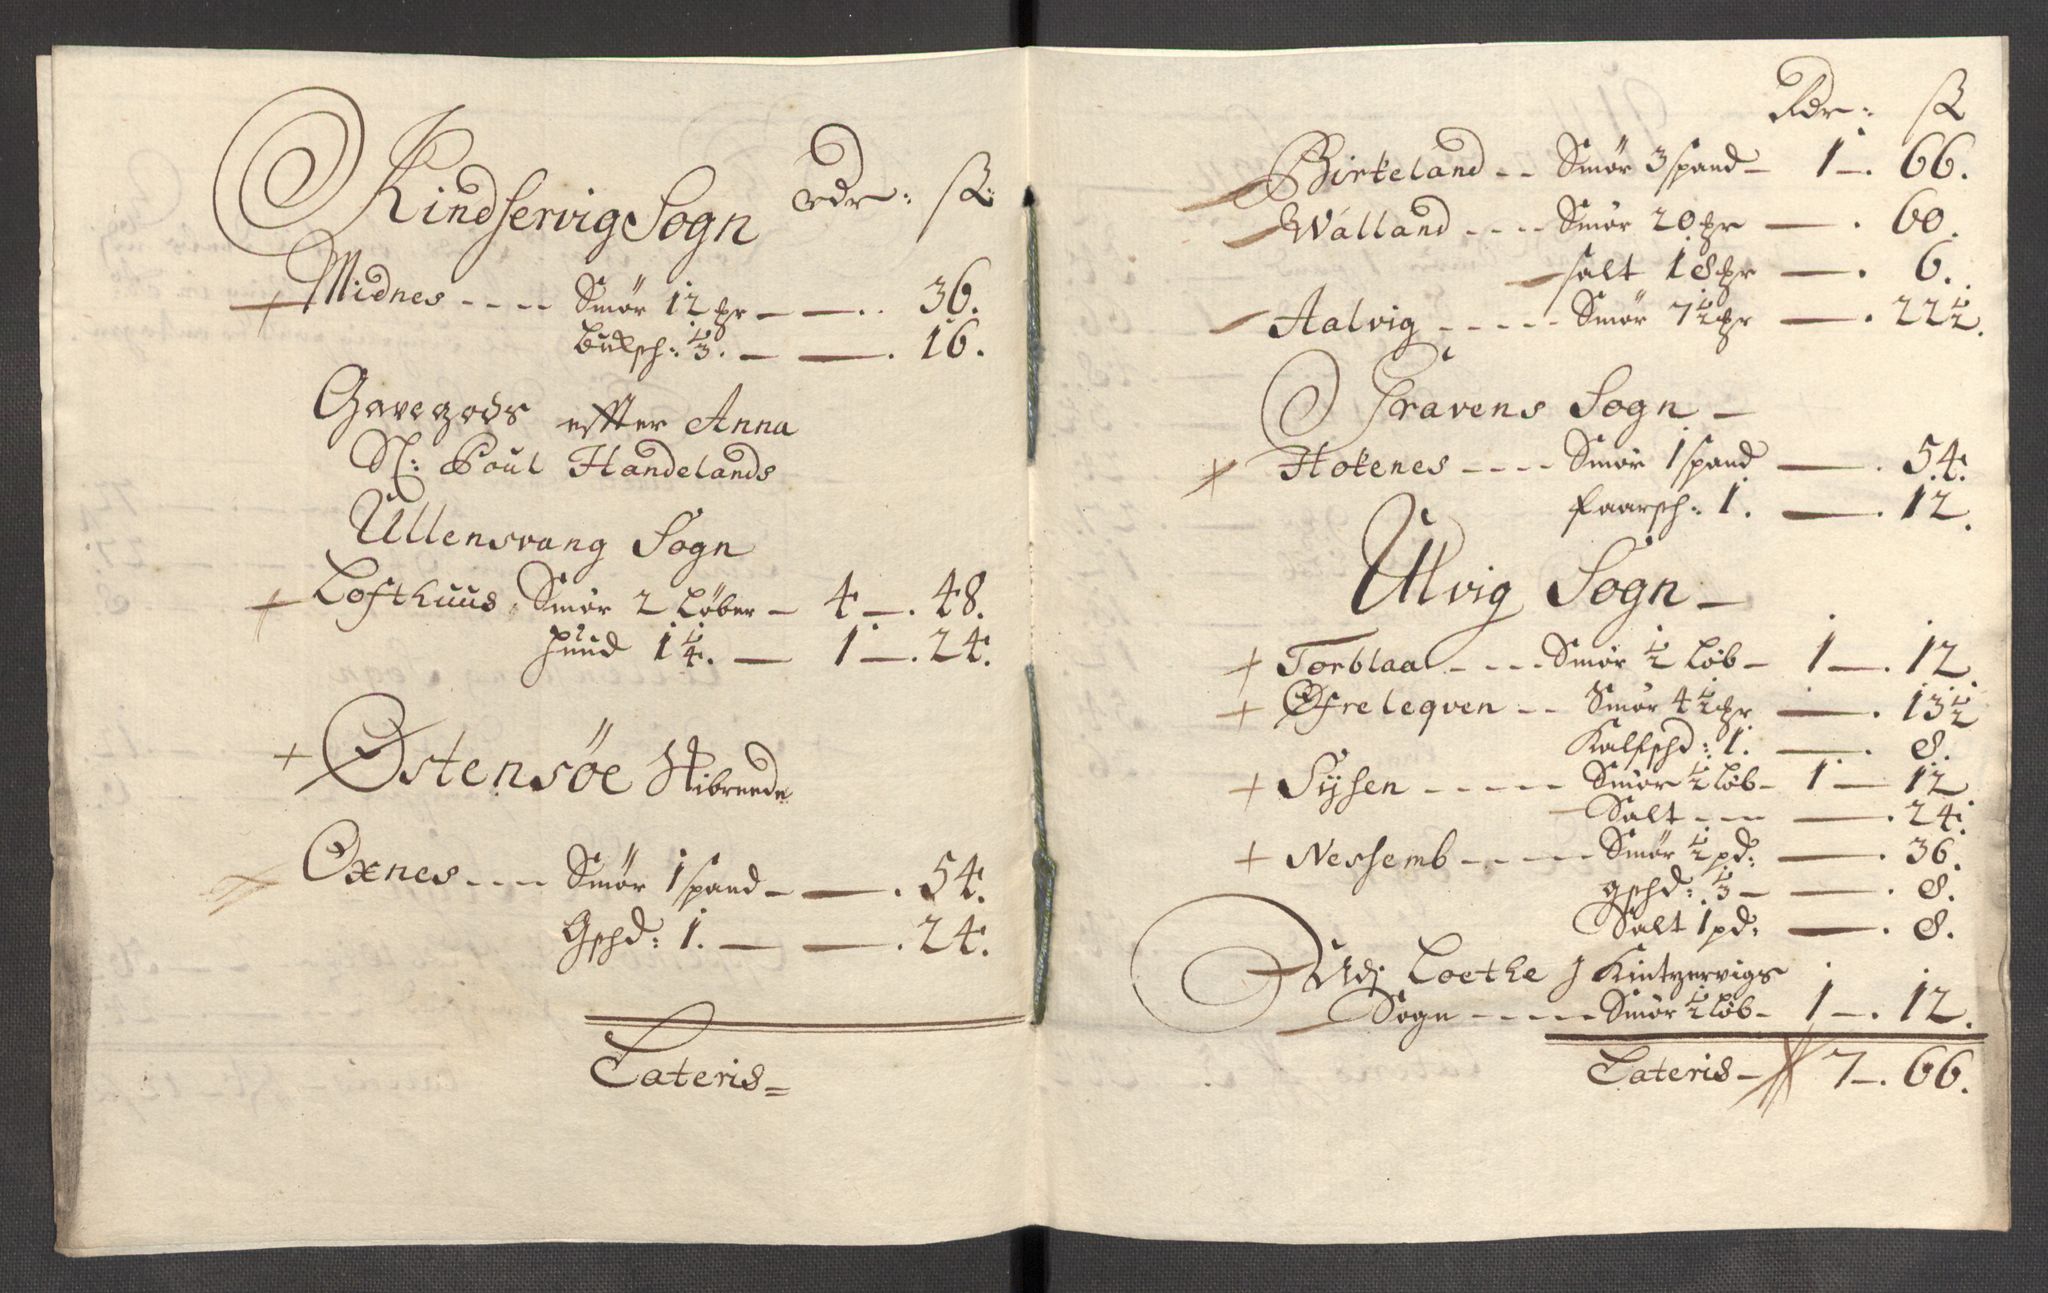 Kindservig Sogn Rdr: ß:
Midnes ---- Smør 12 pr — — . 36.
Buksch: 1/3. — — . 16.
Gavegods effter Anna
Sl: Poul Handelands
Ullensvang Sogn
Lofthuus Smør 2 Løber — 4 — . 48.
huud 1 1/4. — 1 — . 24.
Østensøe Schibreede
Oxnes ---- Smør 1 spand — — . 54.
Gschd: 1. — — . 24.
Lateris =
Rdr: ß
Birkeland -- Smør 3 spand — 1 — . 66.
Walland ---- Smør 20 pr — . 60.
salt 18 pr — . 6.
Aalvig ----- Smør 7 1/2 pr — . 22 1/2.
Gravens Sogn —
Hokenes ---- Smør 1 spand — . 54.
faarsch: 1. — . 12.
Ulvig Sogn —
Torblaa ---- Smør 1/2 Løb — 1 — . 12.
Øfreleqven -- Smør 4 1/2 pr — . 13 1/2
Kalfschd: 1. — . 8.
Sÿsen ----- Smør 1/2 Løb — 1 — 12
Salt --- — . 24.
Nessemb ----- Smør 1/2 pd: — . 36.
gschd: 1/3 — — . 8.
Salt 1 pd: — . 8.
Udj Loethe j Kintzervigs
Sogn ----- Smør 1/2 Løb — 1 — . 12.
Lateris — 7 — . 66.